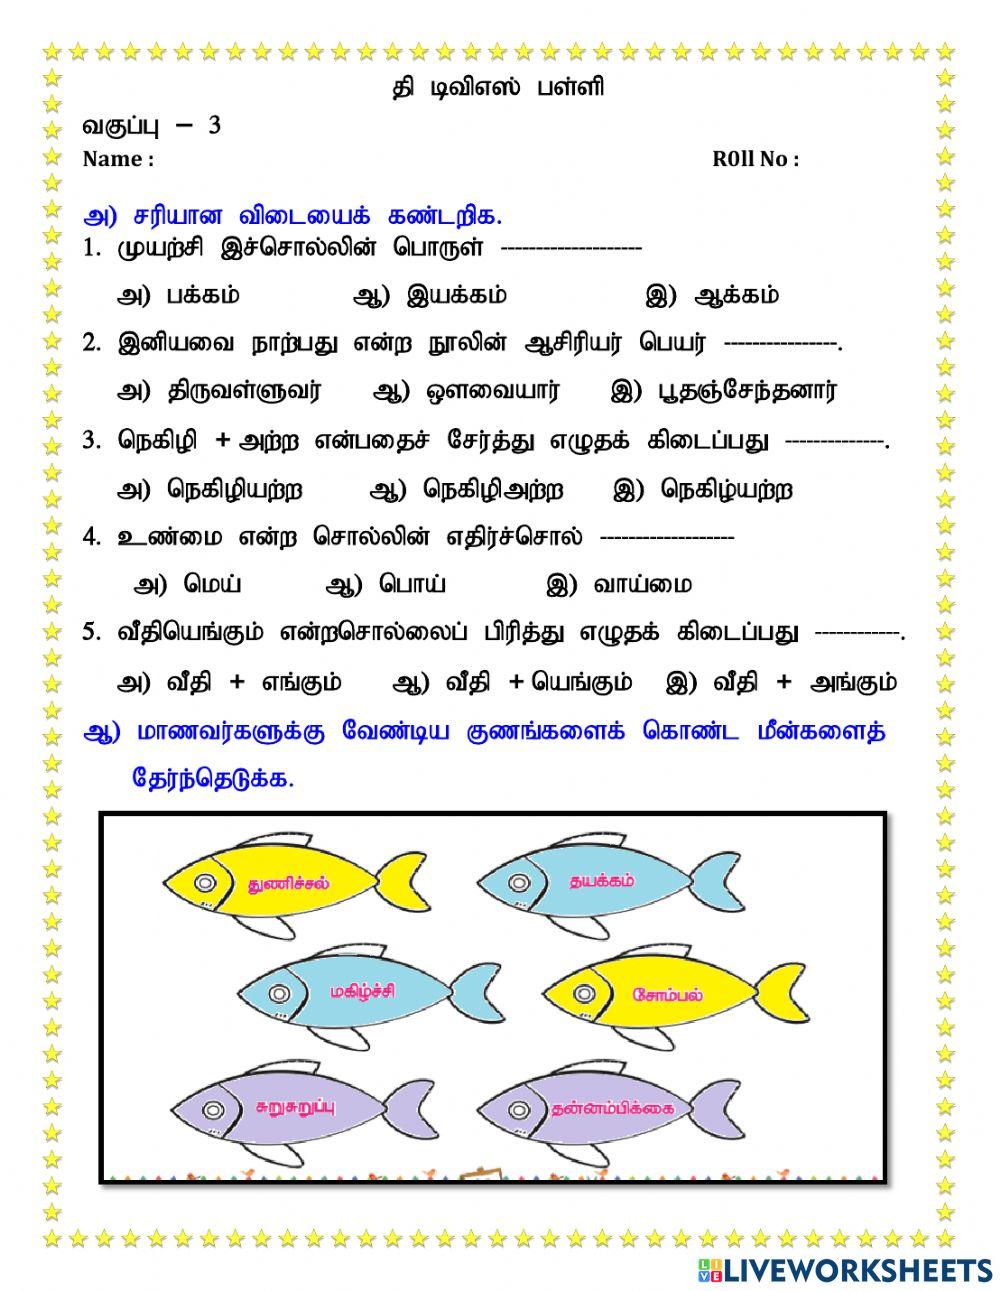 தி டிவிஎஸ் பள்ளி
வகுப்பு – 3
Name : R0ll No :
அ) சரியான விடையைக் கண்டறிக.
1. முயற்சி இச்சொல்லின் பொருள் --------------------
அ) பக்கம் ஆ) இயக்கம் இ) ஆக்கம்
2. இனியவை நாற்பது என்ற நூலின் ஆசிரியர் பெயர் ----------------.
அ) திருவள்ளுவர் ஆ) ஔவையார் இ) பூதஞ்சேந்தனார்
3. நெகிழி + அற்ற என்பதைச் சேர்த்து எழுதக் கிடைப்பது --------------.
அ) நெகிழியற்ற ஆ) நெகிழிஅற்ற இ) நெகிழ்யற்ற
4. உண்மை என்ற சொல்லின் எதிர்ச்சொல் -------------------
அ) மெய் ஆ) பொய் இ) வாய்மை
5. வீதியெங்கும் என்றசொல்லைப் பிரித்து எழுதக் கிடைப்பது ------------.
அ) வீதி + எங்கும் ஆ) வீதி + யெங்கும் இ) வீதி + அங்கும்
ஆ) மாணவர்களுக்கு வேண்டிய குணங்களைக் கொண்ட மீன்களைத்
தேர்ந்தெடுக்க.
துணிச்சல் தயக்கம்
மகிழ்ச்சி சோம்பல்
சுறுசுறுப்பு தன்னம்பிக்கை
LIVE LIVEWORKSHEETS